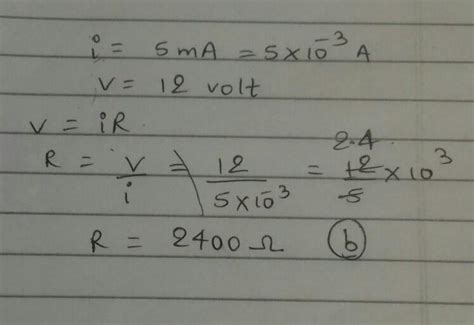 i = 5 mA = 5×10⁻³ A
V = 12 volt
V = iR
R = V/i = 12/(5×10⁻³) = 2.4 12/5 ×10³
R = 2400 Ω (b)